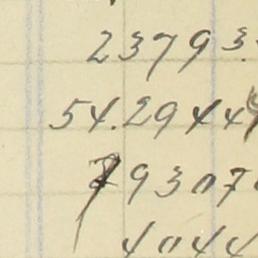 23793.
54.2944
79307
4044